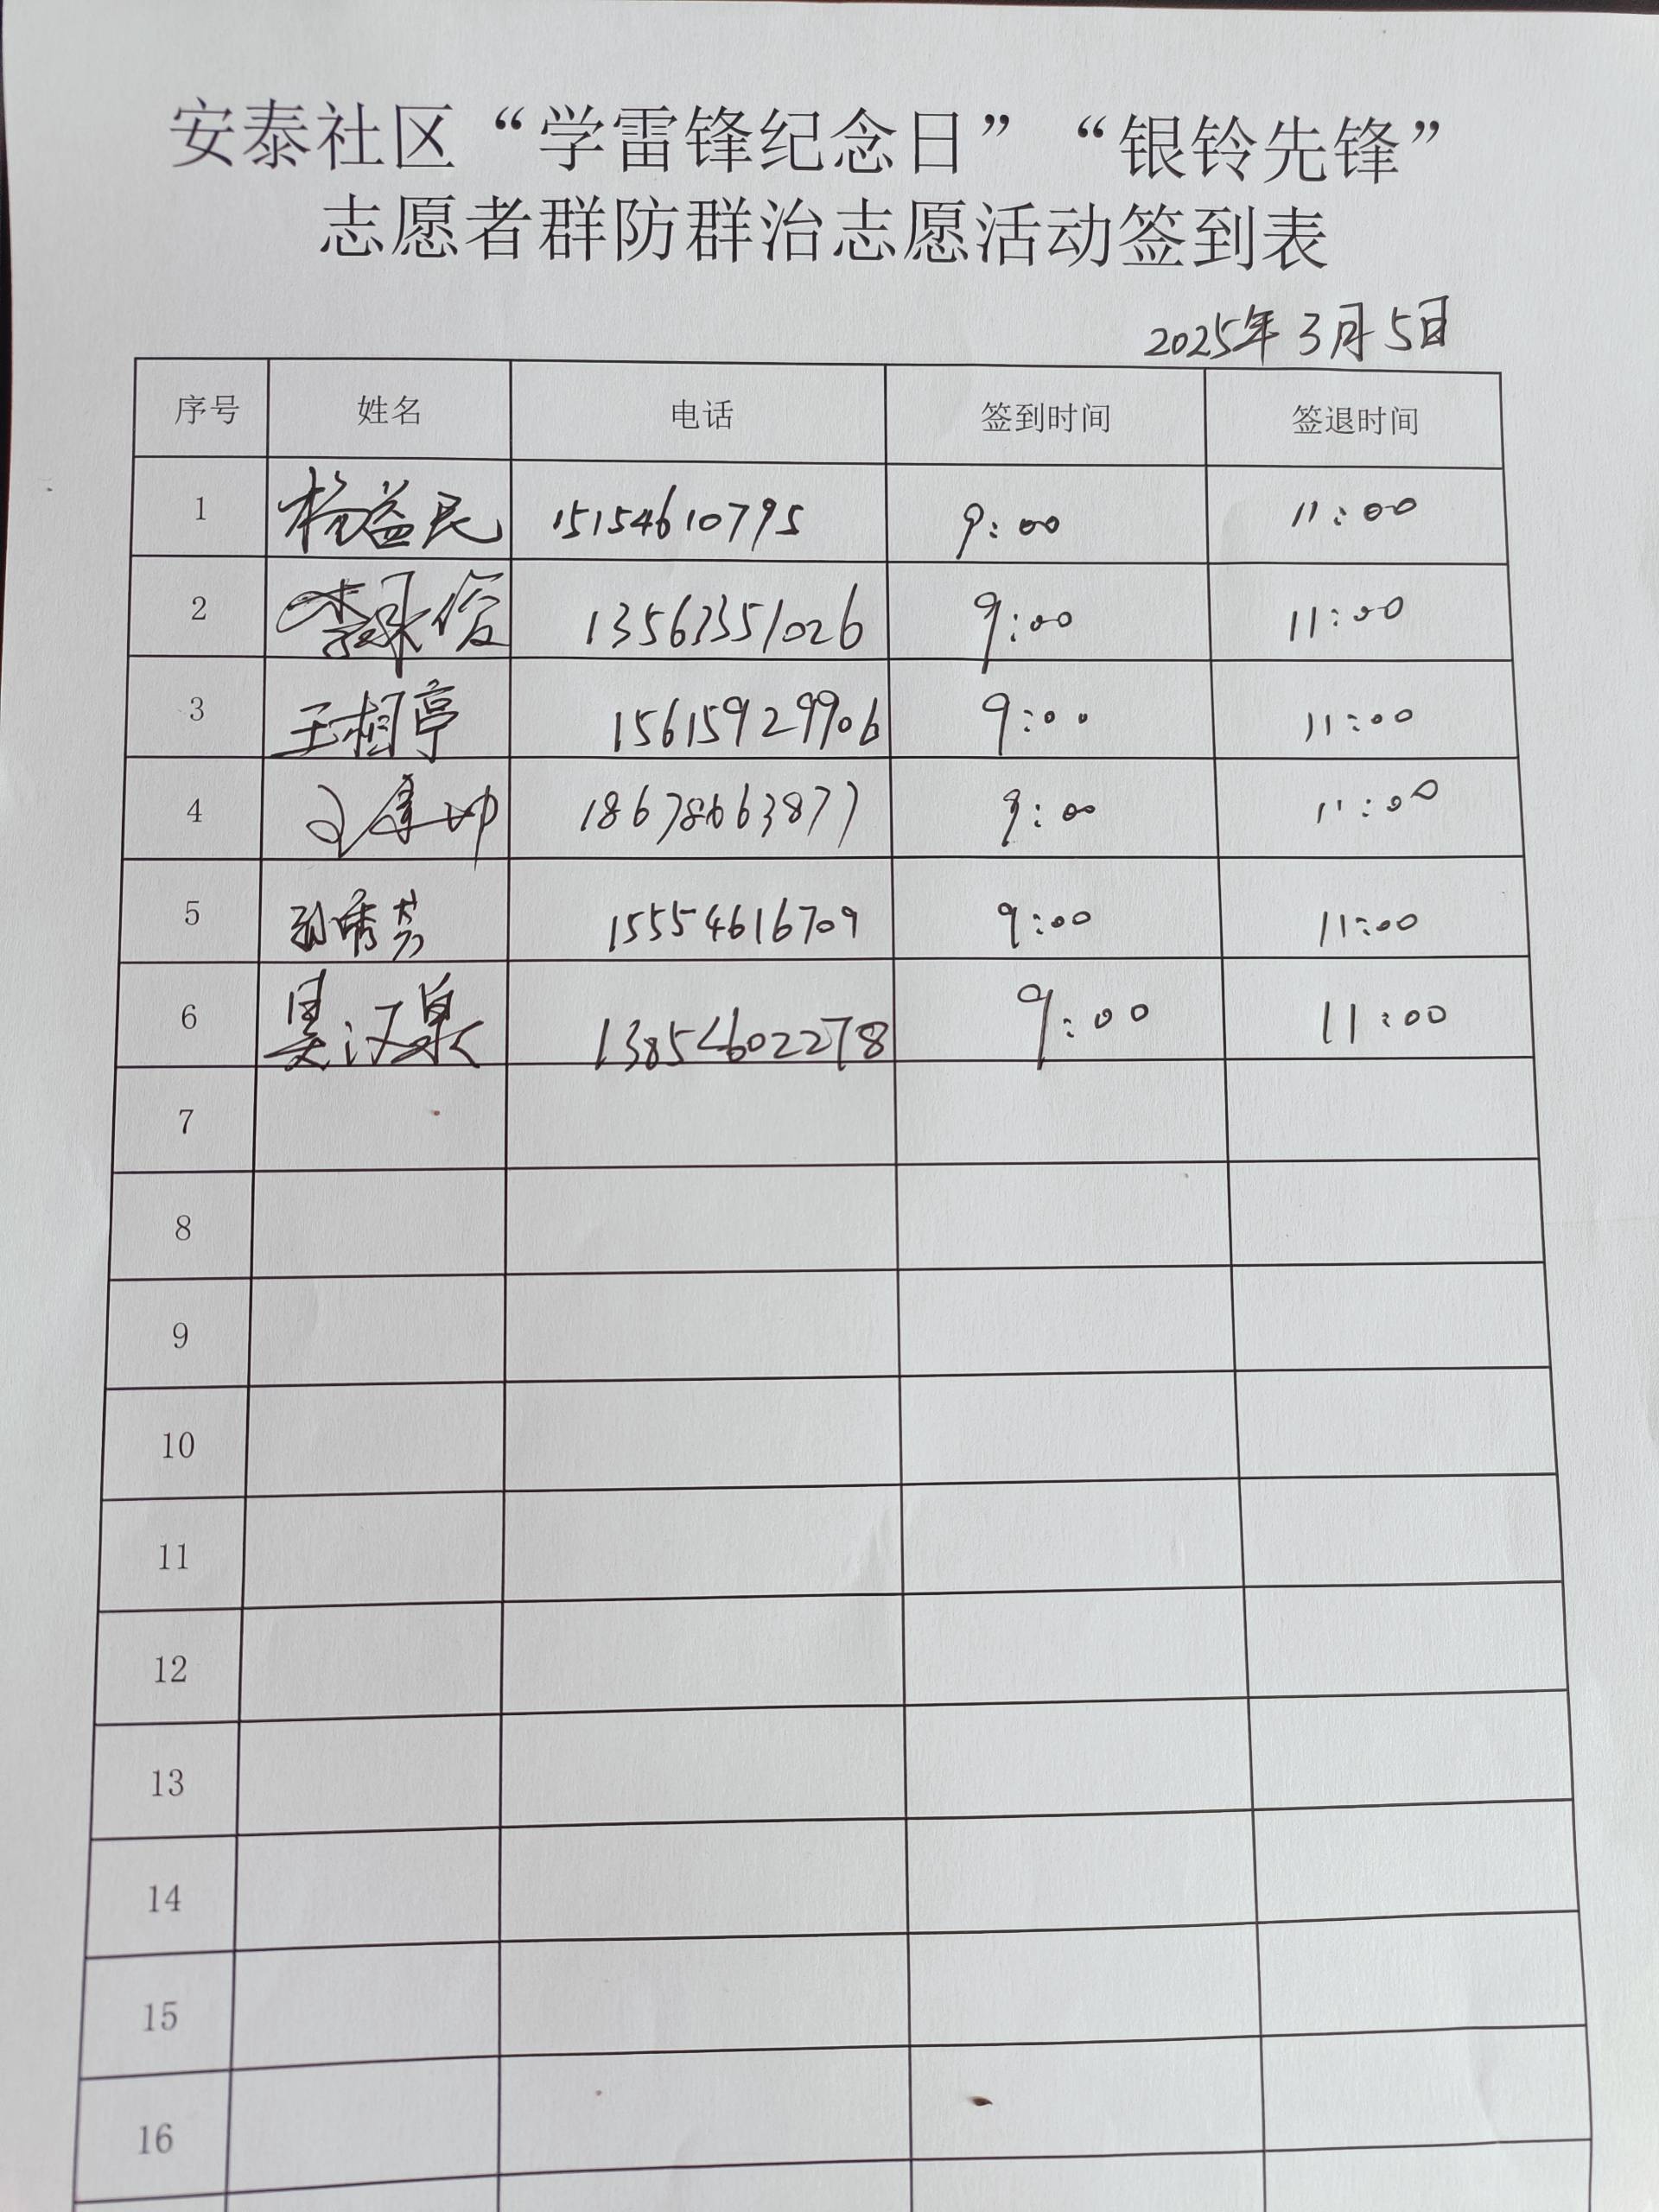 安泰社区“学雷锋纪念日”“银铃先锋”
志愿者群防群治志愿活动签到表
2025年3月5日
序号 姓名 电话 签到时间 签退时间
1 杨益民 15154610795 9:00 11:00
2 李永俊 13563351026 9:00 11:00
3 王相亭 15615929906 9:00 11:00
4 18678663877 9:00 11:00
5 孙秀芳 15554616709 9:00 11:00
6 吴汉泉 13854602278 9:00 11:00
7
8
9
10
11
12
13
14
15
16